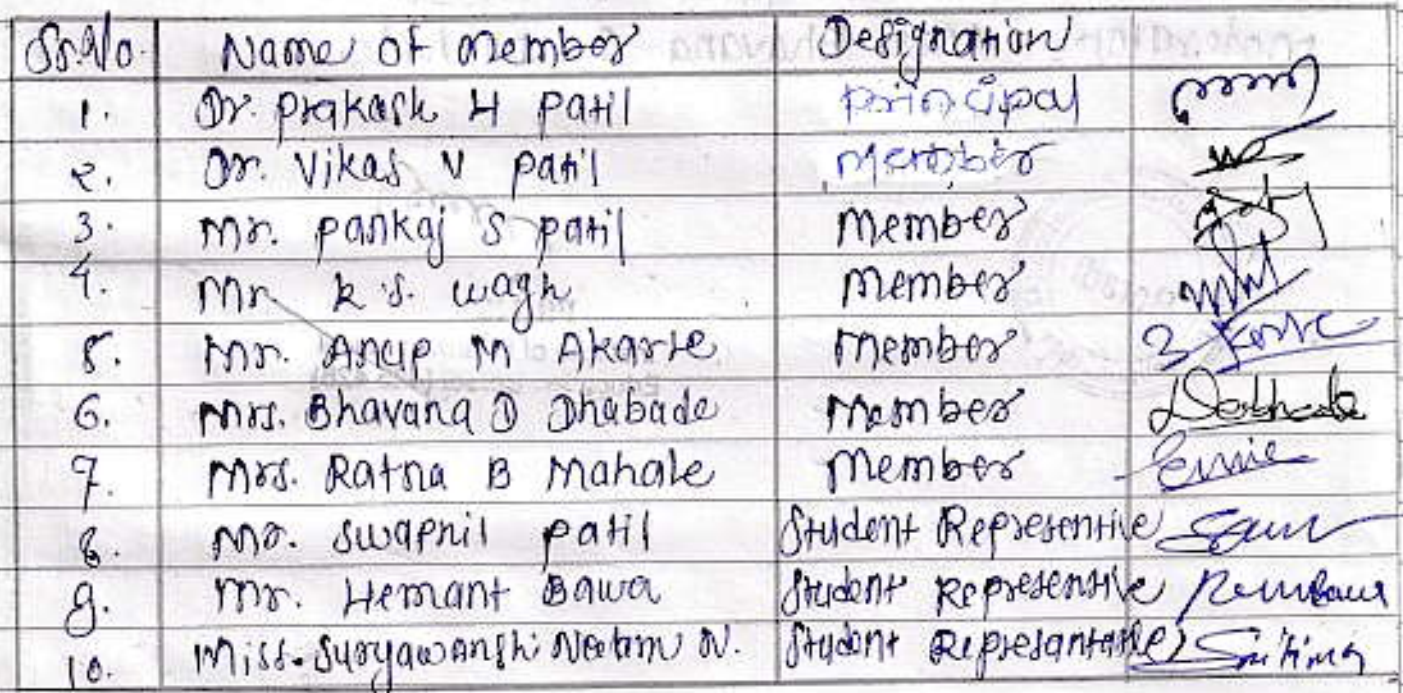 Sr.No. Name of Member Designation
1. Dr. Prakash H Patil Principal
2. Dr. Vikas V Patil Member
3. Mr. Pankaj S Patil Member
4. Mr K.S. Wagh Member
5. Mr. Anup M Akarte Member
6. Mrs. Bhavana D Dhabade Member
7. Mrs. Ratna B Mahale Member
8. Mr. Swapnil Patil Student Representive
9. Mr. Hemant Bawa Student Representive
10. Miss. Suryawanshi Neetam N. Student